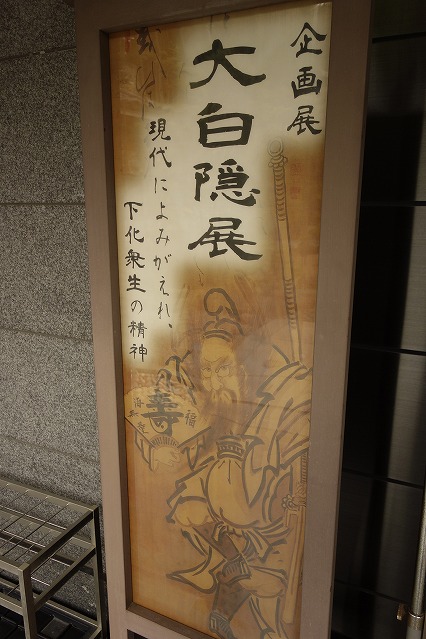 企画展
大白隠展
現代によみがえれ、
下化衆生の精神
壽
福